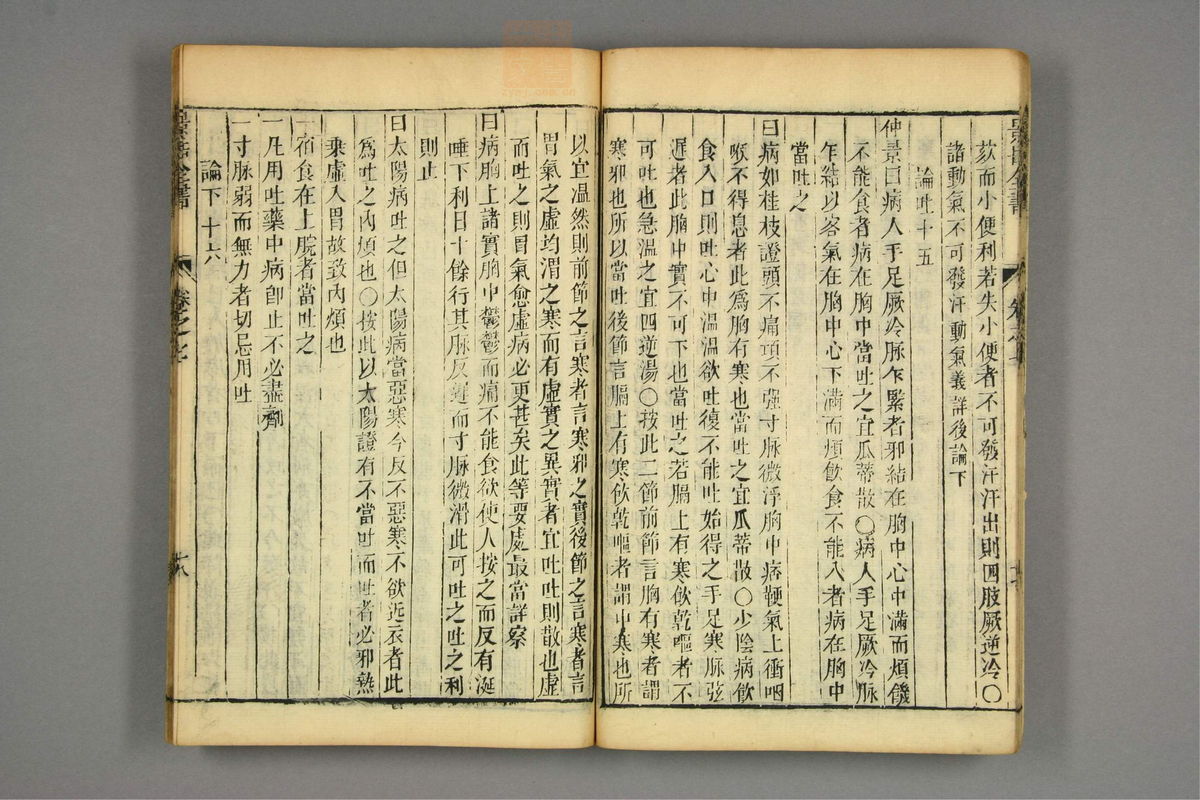 欬而小便利若失小便者不可發汗汗出則四肢厥逆冷〇
諸動氣不可發汗動氣義詳後論下
論吐十五
仲景曰病人手足厥冷脉乍緊者邪結在胸中心中滿而煩饑
不能食者病在胸中當吐之宜瓜蒂散〇病人手足厥冷脉
乍結以客氣在胸中心下滿而煩飲食不能入者病在胸中
當吐之
曰病如桂枝證頭不痛項不强寸脉微浮胸中痞鞕氣上衝咽
喉不得息者此爲胸有寒也當吐之宜瓜蒂散〇少陰病飲
食入口則吐心中溫溫欲吐復不能吐始得之手足寒脉弦
遲者此胸中實不可下也當吐之若膈上有寒飲乾嘔者不
可吐也急溫之宜四逆湯〇按此二節前節言胸有寒者謂
寒邪也所以當吐後節言膈上有寒飲乾嘔者謂中寒也所
以宜溫然則前節之言寒者言寒邪之實後節之言寒者言
胃氣之虛均渭之寒而有虛實之異實者宜吐吐則散也虛
而吐之則胃氣愈虛病必更甚矣此等要處最當詳察
曰病胸上諸實胸中鬱鬱而痛不能食欲使人按之而反有涎
唾下利日十餘行其脉反遲而寸脉微滑此可吐之吐之利
則止
曰太陽病吐之但太陽病當惡寒今反不惡寒不欲近衣者此
爲吐之內煩也〇按此以太陽證有不當吐而吐者必邪熱
乘虛入胃故致內煩也
一宿食在上脘者當吐之
一凡用吐藥中病卽止不必盡劑
一寸脉弱而無力者切忌用吐
論下十六
景岳全書
卷之七
十八